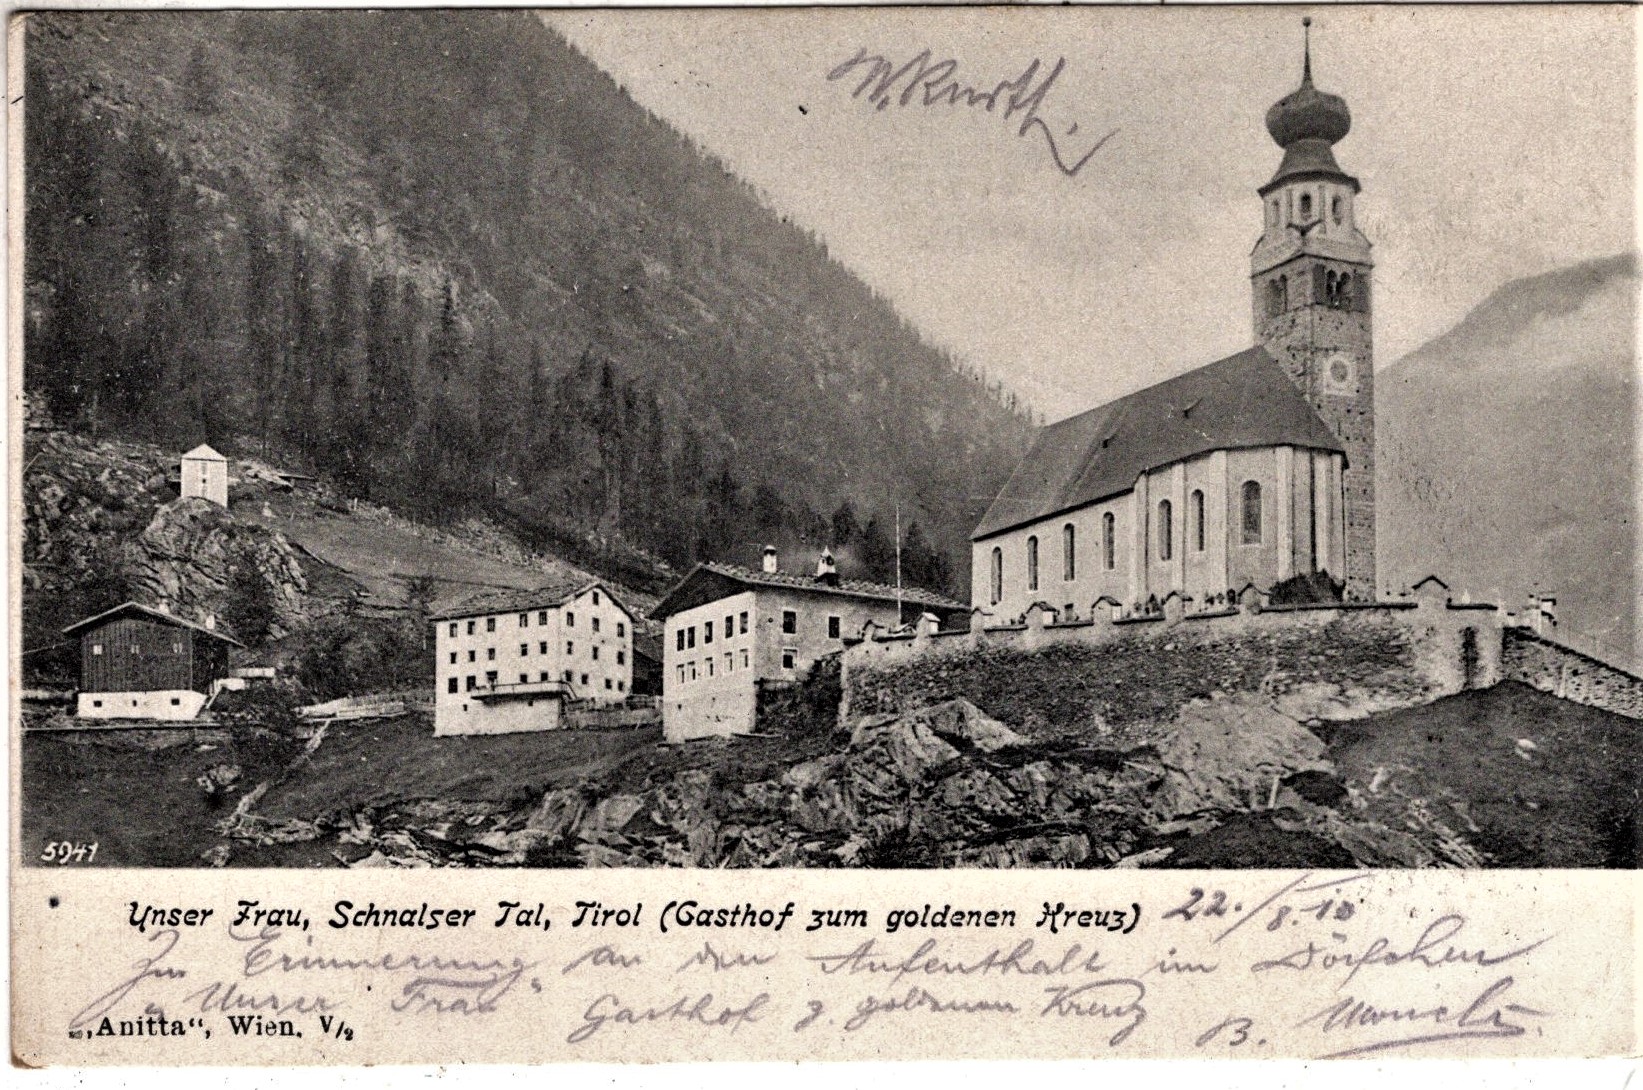 W. Kurth.
5941
Unser Frau, Schnalser Tal, Tirol (Gasthof zum goldenen Kreuz) 22./8.10
Zur Erinnerung an den Aufenthalt im Dörfchen
„Unser Frau“ Gasthof z. goldenen Kreuz B.
„Anitta“, Wien. V/2